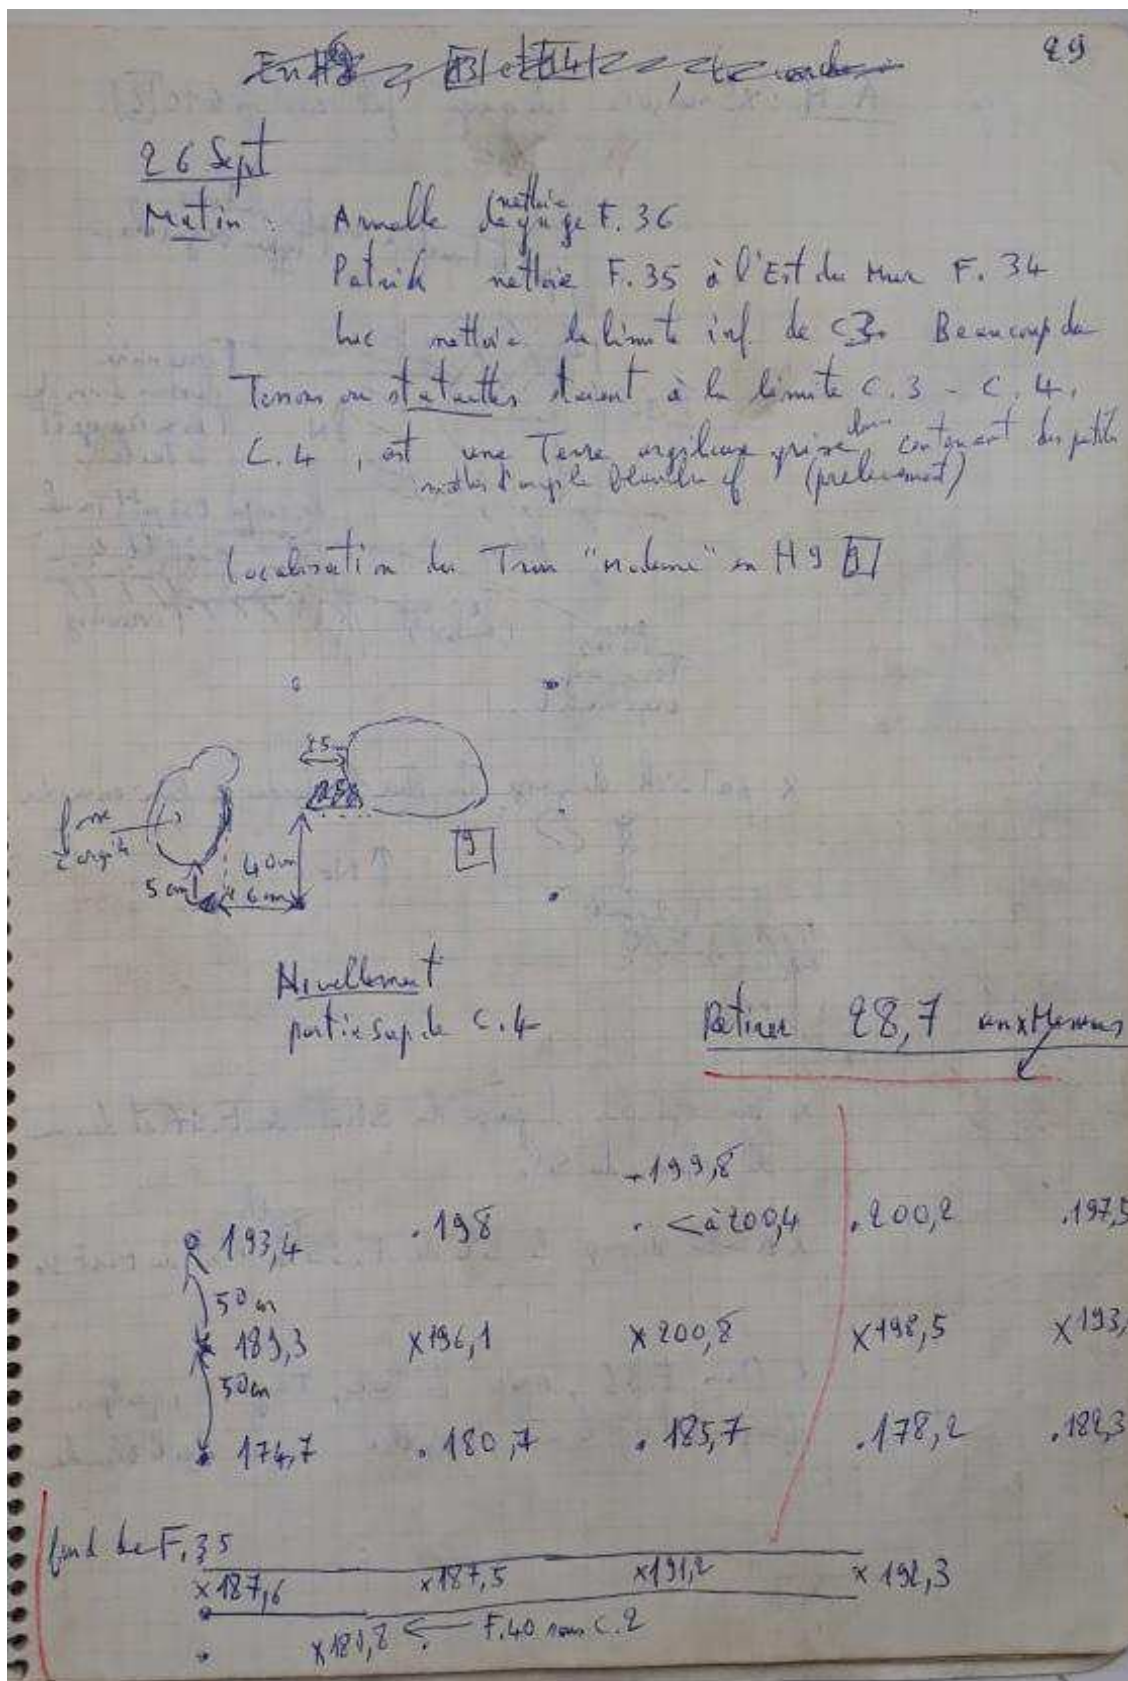 29
26 Sept
Matin : Armelle dégage nettoie F. 36
Patrick nettoie F. 35 à l'Est du Mur F. 34
Luc nettoie la limite inf de C3. Beaucoup de
Tessons ou statuettes étaient à la limite C.3 - C.4.
C.4, est une Terre argileuse grise contenant des petites
d'argile blanche (prelevement)
Localisation du Trou "moderne" en H9 9
25
fosse
d'argile
40 cm
9
5 cm
46 cm
Nivellement
partie sup. de C.4
Retirer 28,7 aux Mesures
199,8
193,4 .198 . < à 200,4 .200,2 .197,5
50 cm
189,3 x196,1 x200,8 x198,5 x193,
50 cm
174,7 .180,7 .185,7 .178,2 .182,3
fond de F.35
x187,6 x187,5 x191,2 x192,3
x180,8 ← F.40 sous C.2